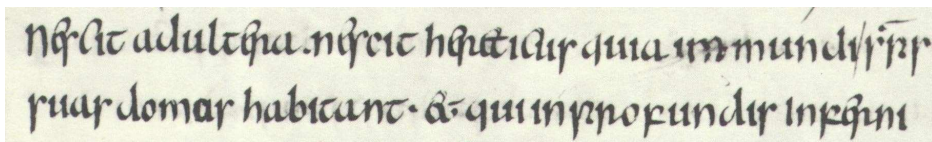 nescit adultera . nescit hereticus quia immundi sp̄s
suas domas habitant · & qui in profundis inferni